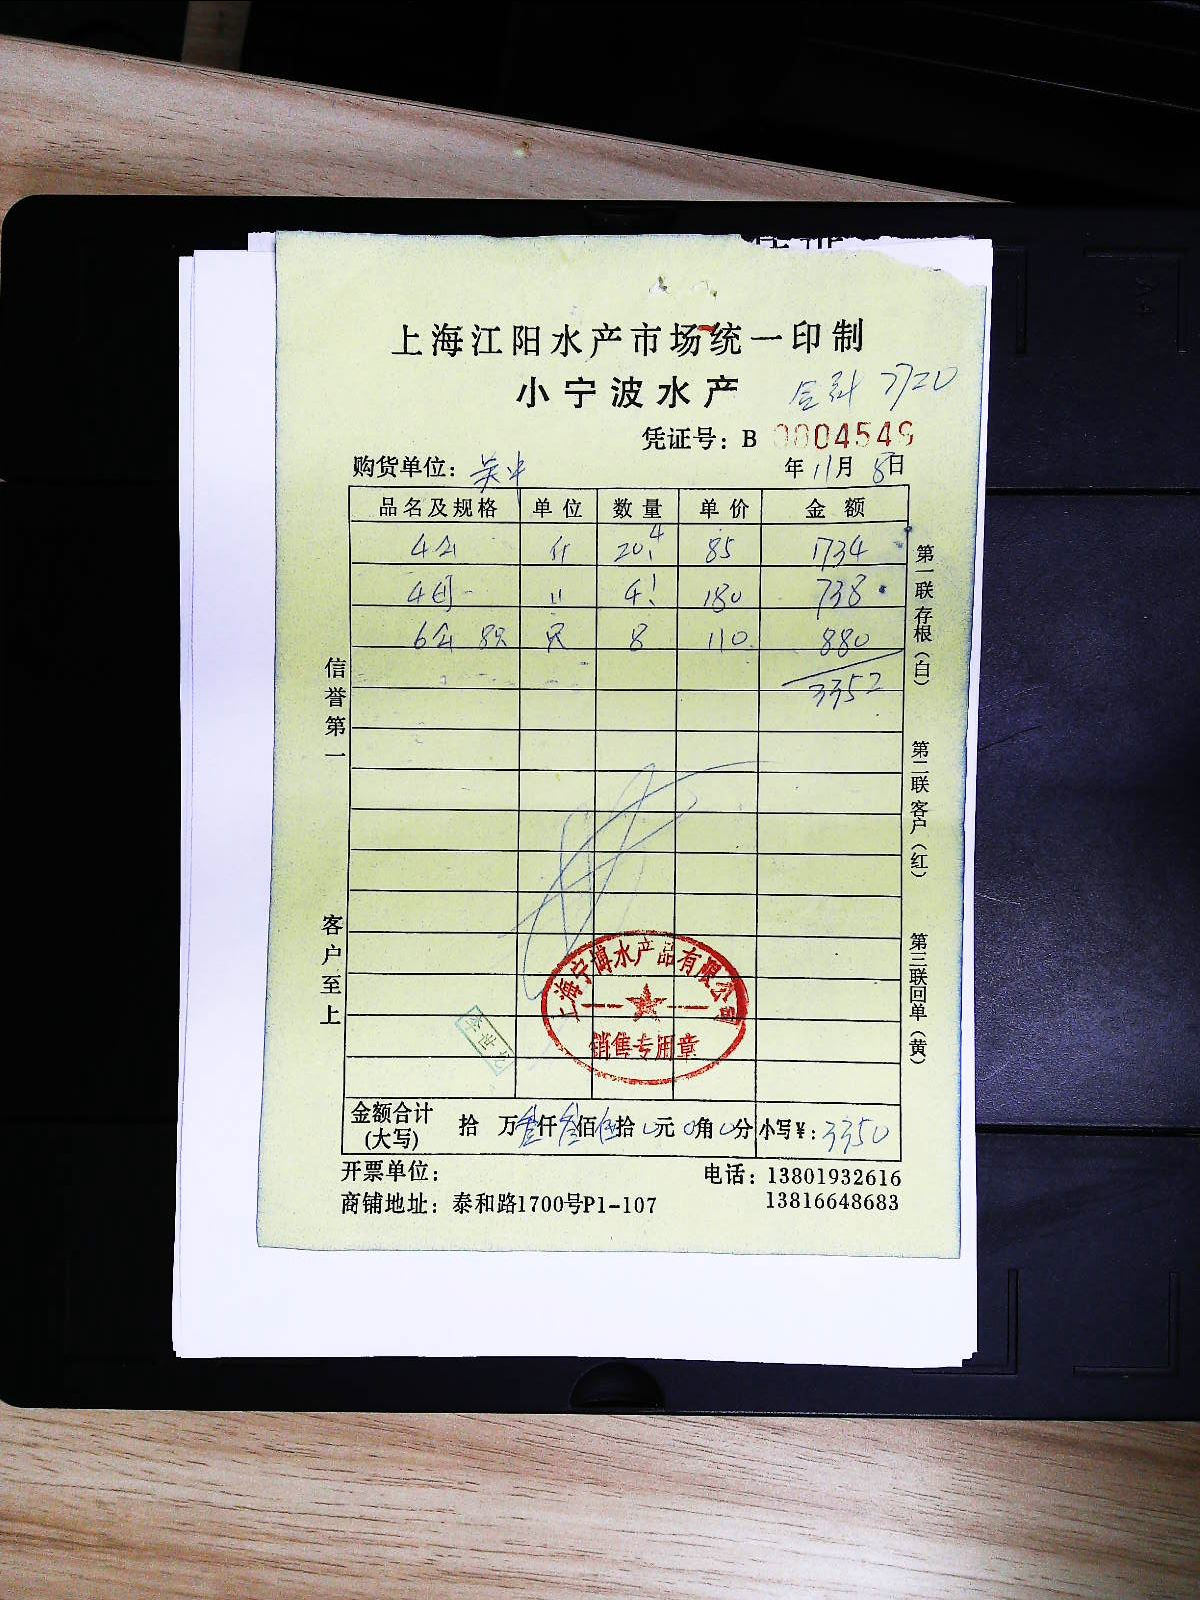 上海江阳水产市场统一印制
小宁波水产
合计 7720
凭证号：B 0004549
购货单位：吴中
年11月8日
品名及规格 单位 数量 单价 金额
4公 斤 20.4 85 1734
4母 〃 4.1 180 738
6公 8只 只 8 110 880
3352
信誉第一
客户至上
第一联存根（白）
第二联客户（红）
第三联回单（黄）
上海宁博水产品有限公司
销售专用章
李世龙
金额合计（大写） 拾 万叁仟叁佰伍拾0元0角0分 小写¥：3350
开票单位：
电话：13801932616
商铺地址：泰和路1700号P1-107
13816648683